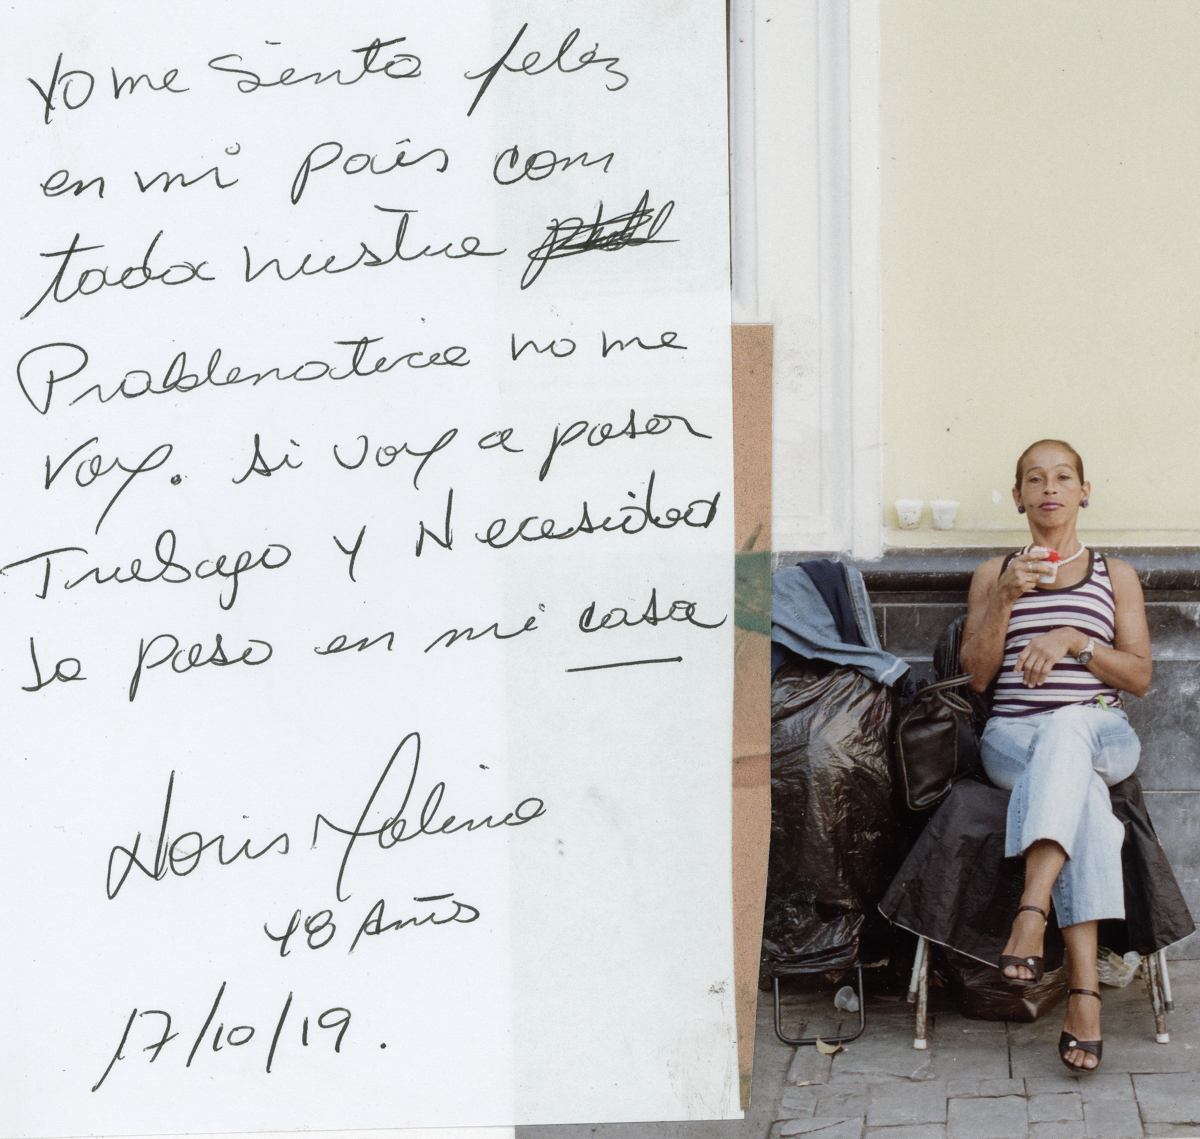 Yo me siento feliz
en mi país com
toda nuestra
Problematica no me
voy. si voy a pasar
Trabago y Necesidad
la paso en mi casa
Noris Molina
48 Años
17/10/19.